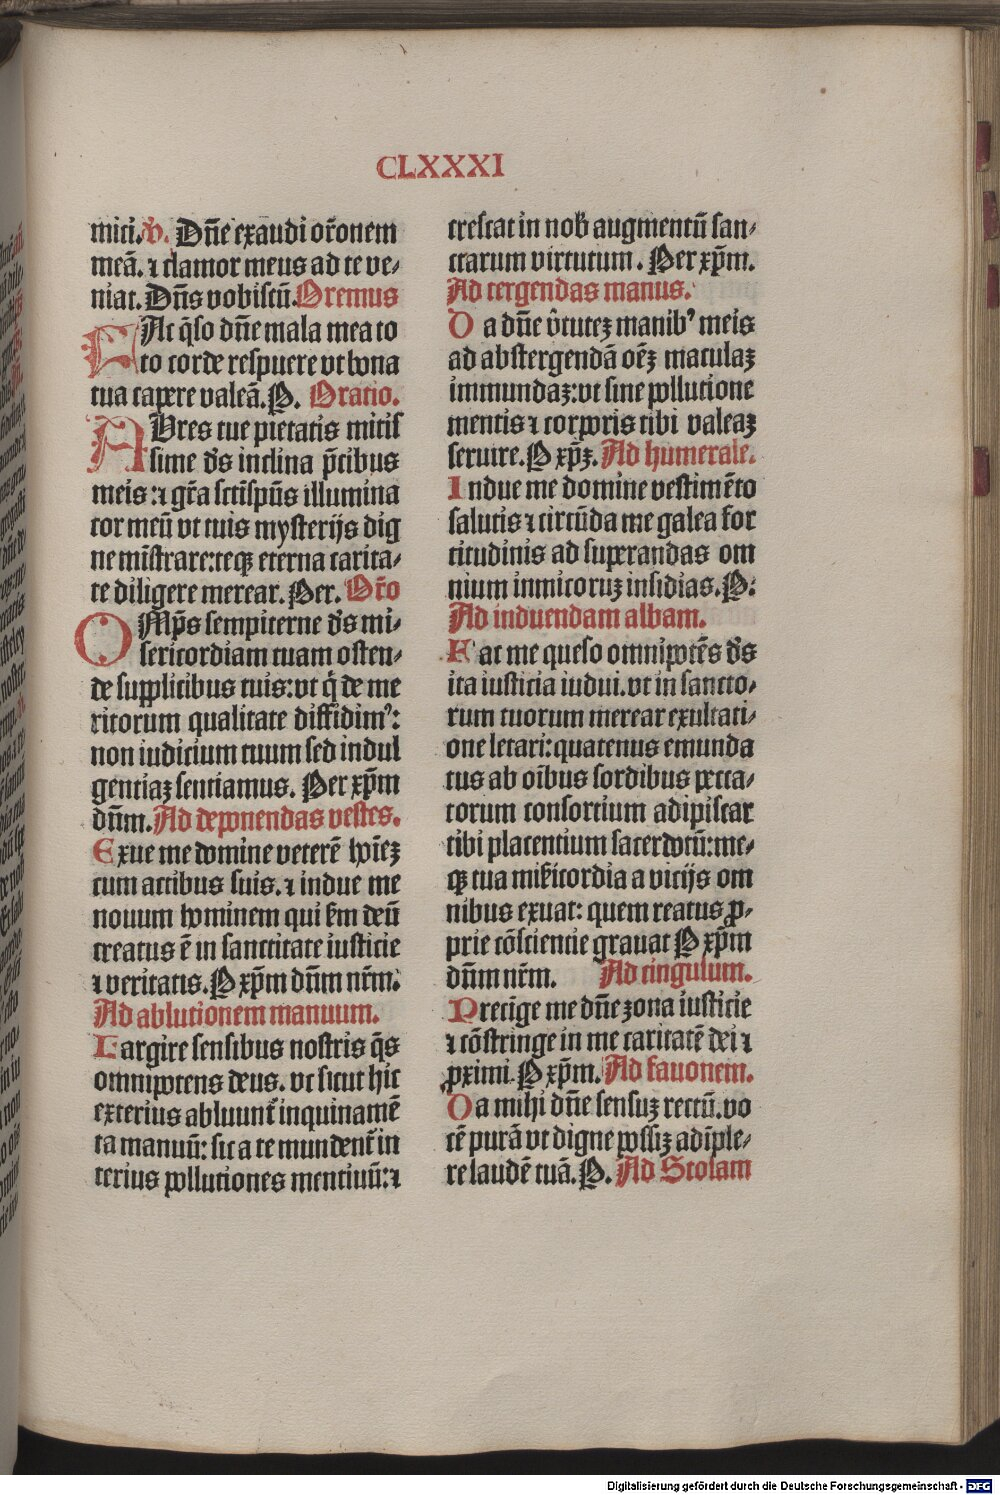 CLXXXI
mici. V̾. Dn̄e exaudi or̄onem
meā. ⁊ clamor meus ad te ve-
niat. Dn̄s vobiscū. Oremus
FAc q̄so dn̄e mala mea to
to corde respuere vt bona
tua capere valeā. P. Oratio.
AUres tue pietatis mitis
sime d̄s inclina p̄cibus
meis: ⁊ gr̄a sct̄ispūs illumina
cor meū vt tuis mysterijs dig
ne mīstrare: teqꝫ eterna carita-
te diligere merear. Per. Or̄o
OMp̄s sempiterne d̄s mi-
sericordiam tuam osten-
de supplicibus tuis: vt q̄ de me
ritorum qualitate diffidim⁹:
non iudicium tuum sed indul
gentiaꝫ sentiamus. Per xp̄m
dn̄m. Ad deponendas vestes.
Exue me domine veterē hoīeꝫ
cum actibus suis. ⁊ indue me
nouum hominem qui ẜm deū
creatus ē in sanctitate iusticie
⁊ veritatis. P xp̄m dn̄m nr̄m.
Ad ablutionem manuum.
Largire sensibus nostris q̄s
omnipotens deus. vt sicut hic
exterius abluunt᷑ inquinamē
ta manuū: sic a te mundent᷑ in
terius pollutiones mentiuū: ⁊
crescat in nob̄ augmentū san-
ctarum virtutum. Per xp̄m.
Ad tergendas manus.
Da dn̄e v̄tuteꝫ manib⁹ meis
ad abstergendā oēꝫ maculaꝫ
immundaꝫ: vt sine pollutione
mentis ⁊ corporis tibi valeaꝫ
seruire. P xp̄ꝫ. Ad humerale.
Indue me domine vestimēto
salutis ⁊ circūda me galea for
titudinis ad superandas om
nium inmicoruꝫ insidias. P:
Ad induendam albam.
Fac me queso omnipotēs d̄s
ita iusticia indui. vt in sancto-
rum tuorum merear exultati-
one letari: quatenus emunda
tus ab oībus sordibus pecca-
torum consortium adipiscar
tibi placentium sacerdotū: me-
qꝫ tua mīẜicordia a vicijs om
nibus exuat: quem reatus ꝓ-
prie cōscientie grauat P xp̄m
dn̄m nr̄m. Ad cingulum.
Precīge me dn̄e zona iusticie
⁊ cōstringe in me caritatē dei ⁊
ꝓximi. P xp̄m. Ad fauonem.
Da mihi dn̄e sensuꝫ rectū. vo
cē purā vt digne possiꝫ adīple-
re laudē tuā. P. Ad Stolam
Digitalisierung gefördert durch die Deutsche Forschungsgemeinschaft - DFG